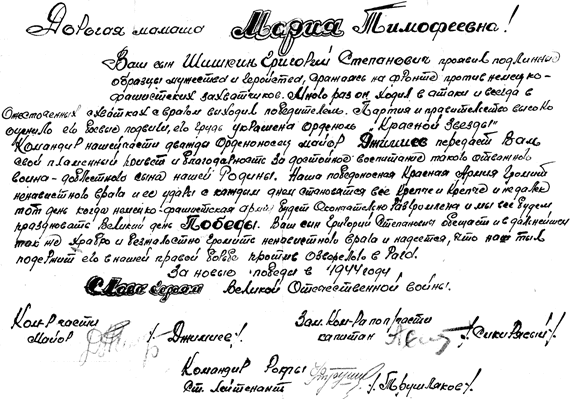 Дорогая мамаша Мария Тимофеевна!
Ваш сын Шишкин Григорий Степанович проявил подлинные
образцы мужества и геройства, сражаясь на фронте против немецко-
фашистских захватчиков. Много раз он ходил в атаки и всегда в
ожесточенных схватках с врагом выходил победителем. Партия и правительство высоко
оценило его боевые подвиги, его грудь украшена орденом "Красной Звезды"
Командир нашей части дважды Орденоносец майор Джилиев передает Вам
свой пламенный привет и благодарность за достойное воспитание такого отважного
воина - доблестного сына нашей Родины. Наша победоносная Красная Армия громит
ненавистного врага и ее удары с каждым днем становятся все крепче и крепче и недалек
тот день когда немецко-фашистская армия будет окончательно разгромлена и мы все будем
праздновать великий день Победы. Ваш сын Григорий Степанович обещает и в дальнейшем
так же храбро и безжалостно громить ненавистного врага и надеется, что наш тыл
поддержит его в нашей правой борьбе против
За новые победы в 1944 году!
Слава героям Великой Отечественной войны.
Ком-р части Зам. Ком-ра по п/части
майор /Джилиев/. капитан
Командир Роты
Ст. Лейтенант